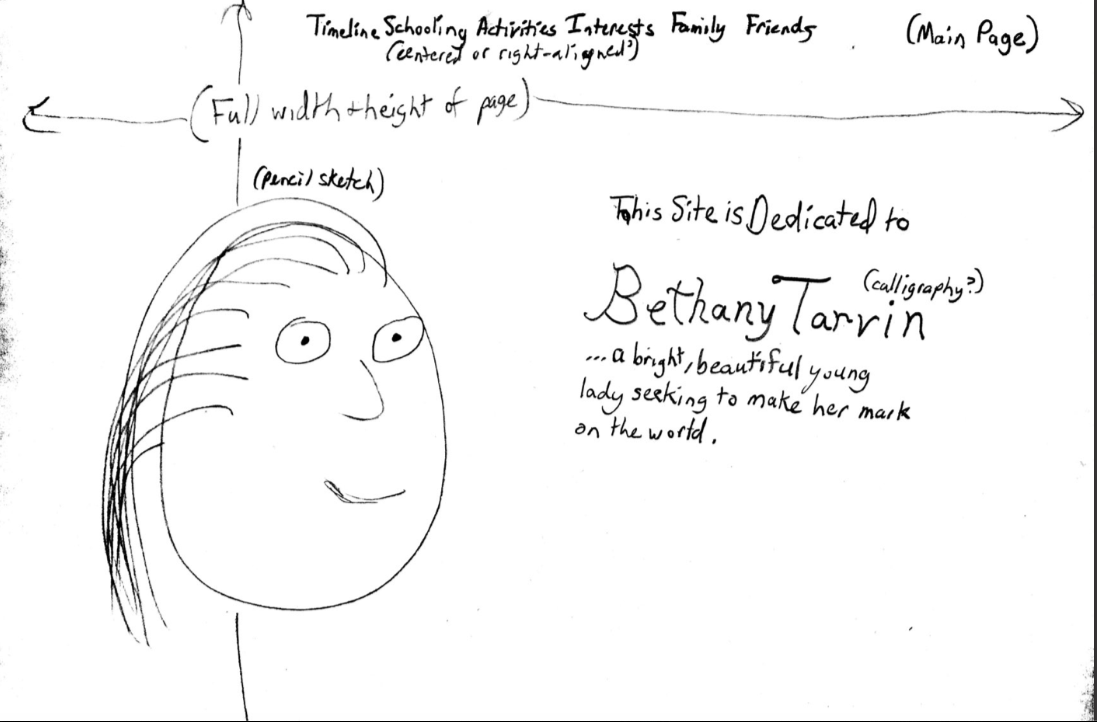 Timeline Schooling Activities Interests Family Friends
(centered or right-aligned?)
(Main Page)
(Full width + height of page)
(pencil sketch)
This Site is Dedicated to
Bethany Tarvin
(calligraphy?)
...a bright, beautiful young
lady seeking to make her mark
on the world.